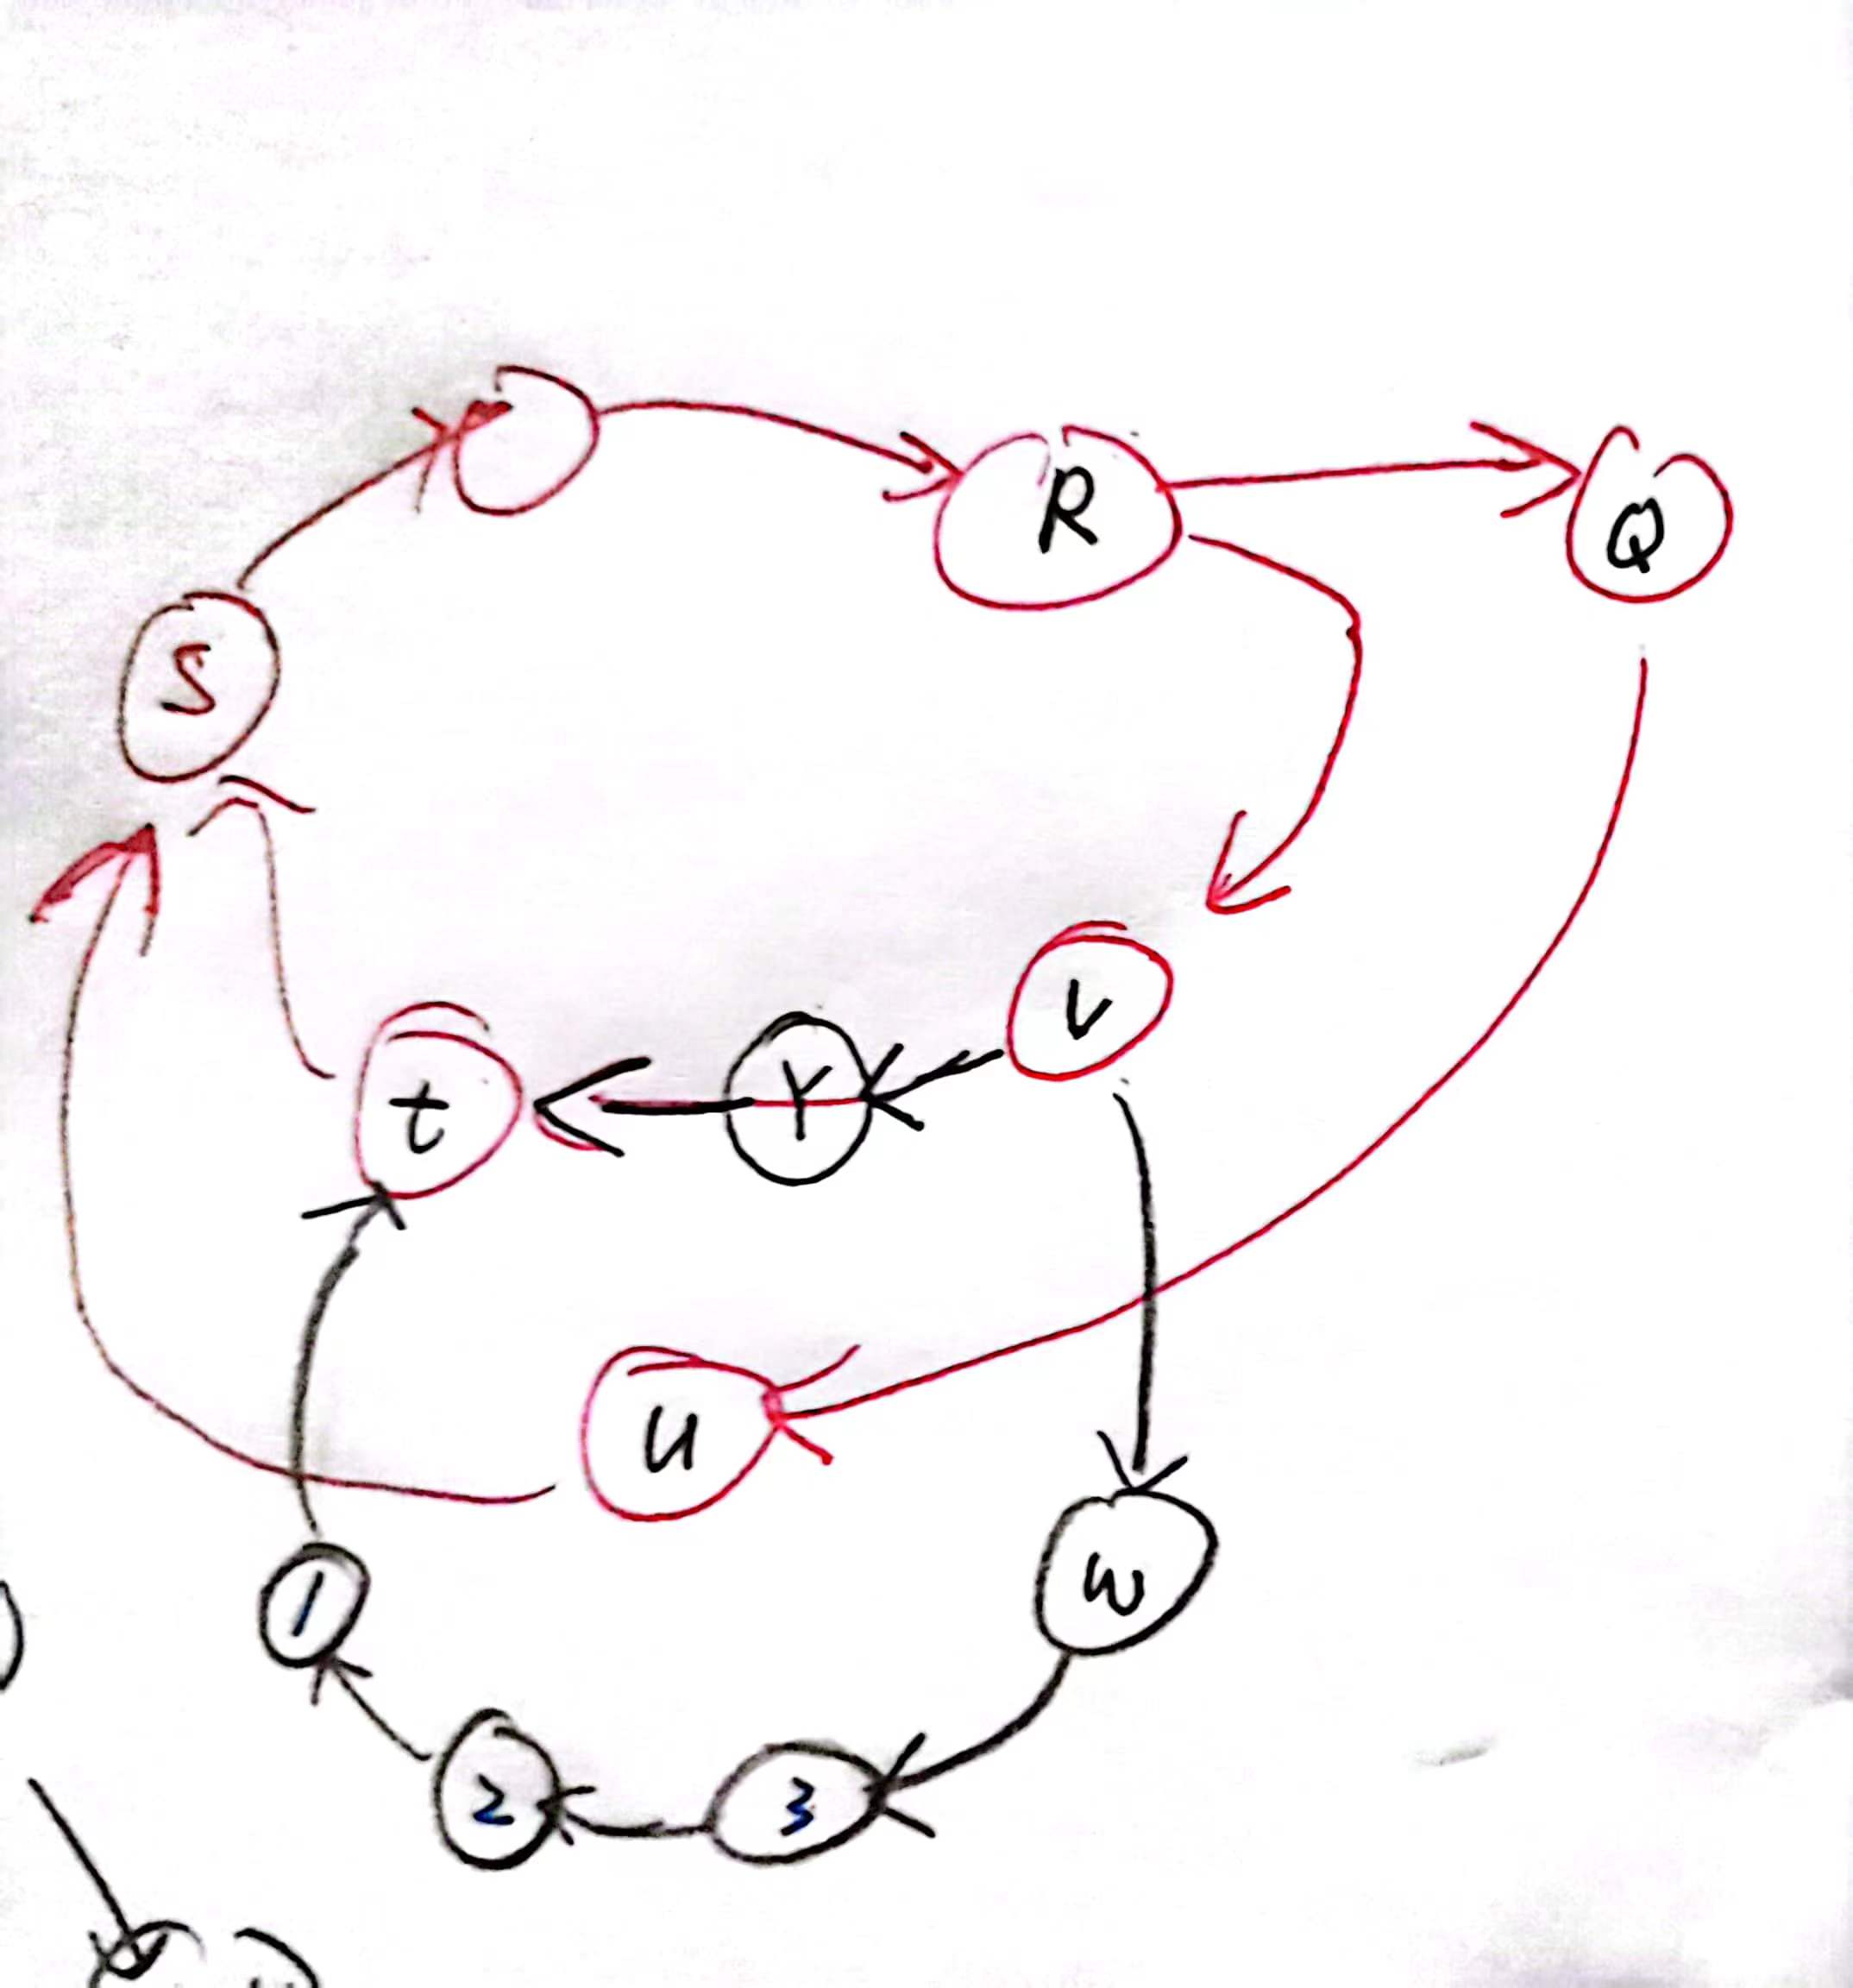 R
Q
S
V
Y
t
U
W
1
2
3